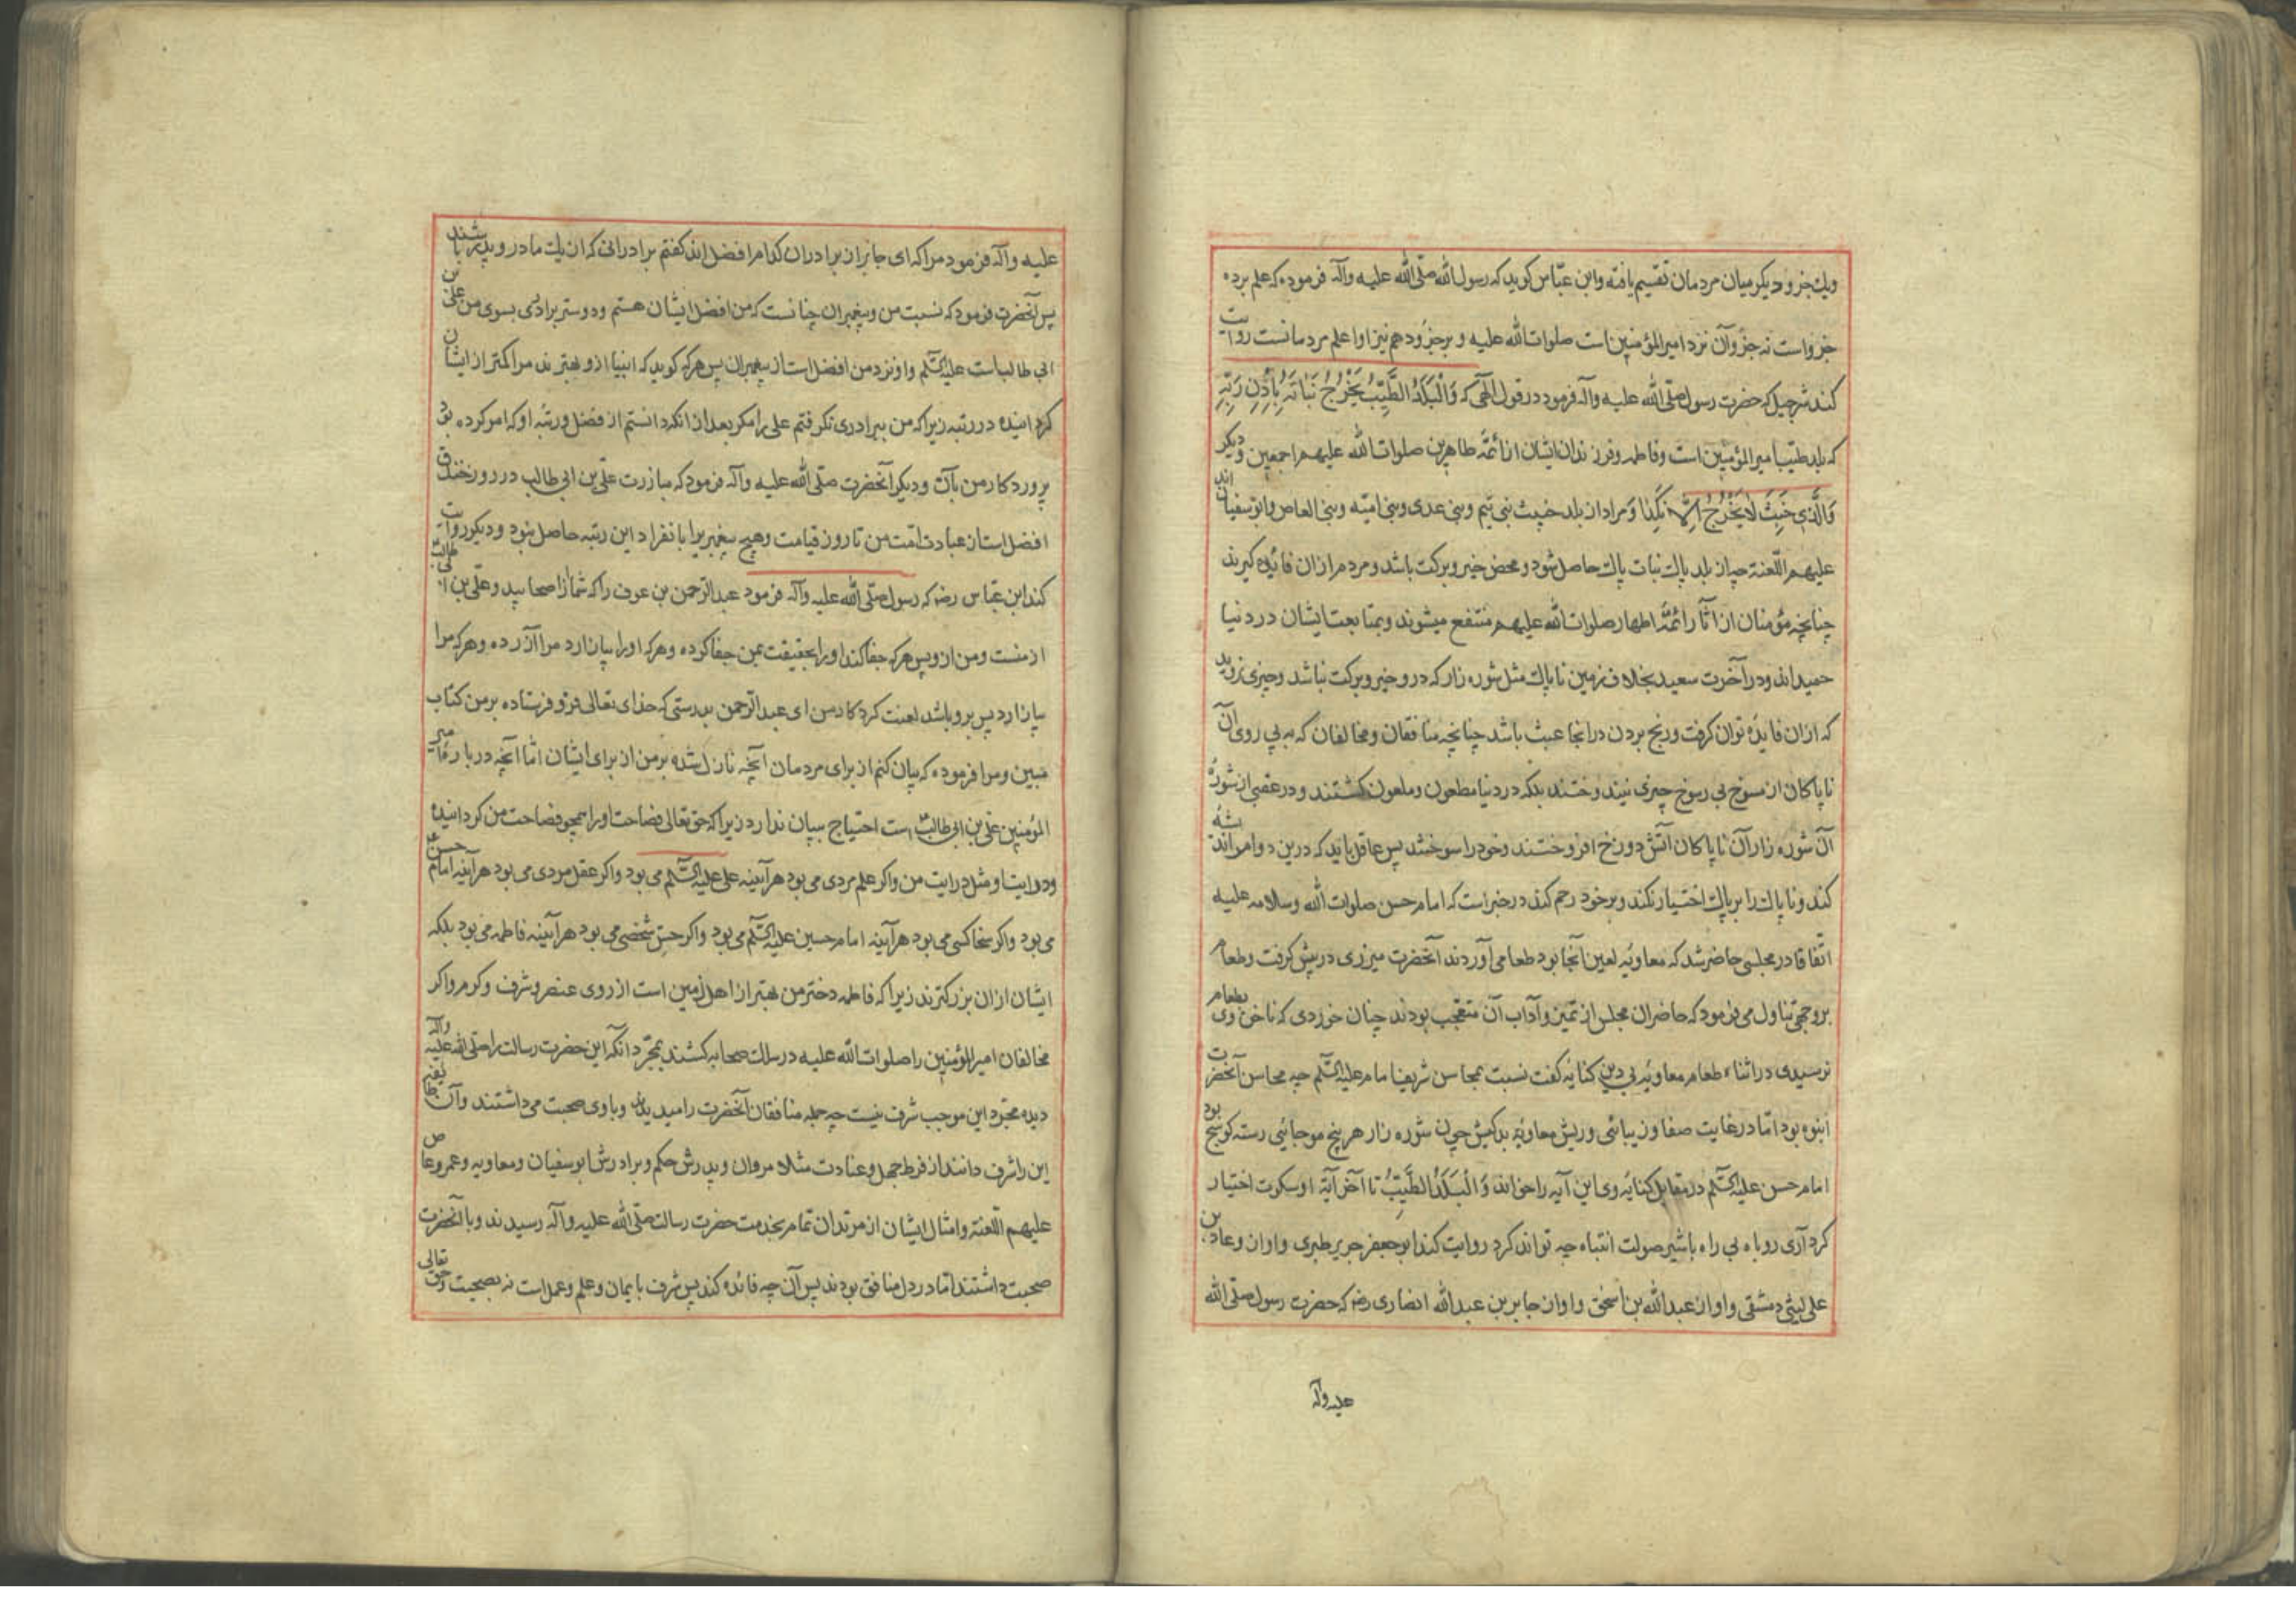 ویك جزو دیكر میان مردمان تقسیم یافته وابن عبّاس كوید كه رسول الله صلّی الله علیه وآله فرموده كه علم برده
جزواست نه جزوآن نزد امیرالمؤمنین است صلوات الله علیه و برجزو دهم نیز اوا علم مردمانست روایت
كند شرجیل كه حضرت رسول صلّی الله علیه وآله فرمود در قول الهی كه وَالْبَلَدُ الطَّیِّبُ یَخْرُجُ نَبَاتُهُ بِاِذْنِ رَبِّهِ
كه بلد طیّب امیرالمؤمنین است وفاطمه وفرزندان ایشان از ائمّهٔ طاهرین صلوات الله علیهم اجمعین ودیكر
وَالَّذی خَبُثَ لَا یَخْرُجُ اِلَّا نَكِدًا ومراد از بلد خبیث بنی تیم وبنی عدی وبنی امیّه وبنی العاص وابوسفیان اند
علیهم اللّعنة چه از بلد پاك نبات پاك حاصل شود ومحض خیر وبركت باشد ومردم از ان فائده كیرند
چنانچه مؤمنان از آثار ائمّهٔ اطهار صلوات الله علیهم منتفع میشوند وبمتابعت ایشان در دنیا
حمیداند ودر آخرت سعید بخلاف زمین ناپاك مثل شوره زار كه درو خیر وبركت نباشد وچیزی نروید
كه از ان فایده توان كرفت ورنج بردن در انجا عبث باشد چنانچه منافقان ومخالفان كه به پی روی آن
ناپاكان از مسوخ بی رسوخ چیزی نیندوختند بلكه در دنیا مطعون وملعون كشتند ودر عقبی از شورهٔ
آن شوره زار آن ناپاكان آتش دوزخ افروختند وخود را سوختند پس عاقل باید كه درین دوام اندیشه
كند وناپاك را بر پاك اختیار نكند وبرخود رحم كند در خبر است كه امام حسن صلوات الله وسلامه علیه
اتّفاقا در مجلسی حاضر شد كه معاویهٔ لعین آنجا بود طعام می آوردند آنحضرت میزری در پیش كرفت وطعام
بروجهی تناول می فرمود كه حاضران مجلس از تمیز وآداب آن متعجّب بودند چنان خوردی كه ناخن وی بطعام
نرسیدی در اثناء طعام معاویهٔ بی دین كنایه كفت نسبت بمحاسن شریف امام علیه السّلم چه محاسن آنحضرت
انبوه بود امّا در غایت صفا وزیبائی وریش معاویهٔ بدكیش چون شوره زار هر پنج مو جائی رسته كوسج بود
امام حسن علیه السّلم در مقابل كنایهٔ وی این آیه را خواند وَالْبَلَدُ الطَّیِّبُ تا آخر آیة او سكوت اختیار
كرد آری روباه بی راه با شیر صولت انتباه چه تواند كرد روایت كند ابوجعفر جریر طبری واوان وعاد بن
علی لیثی دمشقی واواز عبدالله بن اسحق واوان جابر بن عبدالله انصاری رضه كه حضرت رسول صلّی الله
علیه وآله
علیه وآله فرمود مرا كه ای جابر از برادران كدام افضل اند كفتم برادرانی كه از یك مادر وپدر باشند
پس آنحضرت فرمود كه نسبت من وپیغمبران چنانست كه من افضل ایشان هستم ودوستر برادری بسوی من علیّ بن
ابی طالب است علیه السّلم واو نزد من افضل است از پیغمبران پس هركه كوید كه انبیا ازو بهترند مرا كمتر از ایشان
كردانیده در رتبه زیرا كه من ببرادری نكرفتم علی را مكر بعد از انكه دانستم از فضل ورتبهٔ او كه امر كرده بود
پروردكار من بآن ودیكر آنحضرت صلّی الله علیه وآله فرمود كه مبازرت علیّ بن ابی طالب در روز خندق
افضل است از عبادت امّت من تا روز قیامت وهیچ پیغمبریرا بانفراد این رتبه حاصل نبود ودیكر روایت
كند ابن عبّاس رضه كه رسول صلّی الله علیه وآله فرمود عبدالرّحمن بن عوف را كه شما از اصحابید وعلیّ بن ابی طالب
از منست ومن ازو پس هركه جفا كند او را بحقیقت بمن جفا كرده وهركه او را بیازارد مرا آزرده وهركه مرا
بیازارد پس بروباشد لعنت كردكار من ای عبدالرّحمن بدرستی كه خدای تعالی فرو فرستاده بر من كتاب
مبین ومرا فرموده كه بیان كنم از برای مردمان آنچه نازل شده بر من از برای ایشان امّا آنچه در باره امیر
المؤمنین علیّ بن ابی طالب است احتیاج ببیان ندارد زیرا كه حق تعالی فصاحت او را همچو فصاحت من كردانیده
ودرایت او مثل درایت من واكر علم مردی می بود هرآینه علی علیه السّلم می بود واكر عقل مردی می بود هرآینه امام حسن
می بود واكر سخا كسی می بود هرآینه امام حسین علیه السّلم می بود واكر حسن شخصی می بود هرآینه فاطمه می بود بلكه
ایشان از ان بزركترند زیرا كه فاطمه دختر من بهتر از اهل زمین است از روی عنصر وشرف وكرم واكر
مخالفان امیرالمؤمنین را صلوات الله علیه در سلك صحابه كشند بمجرّد آنكه این حضرت رسالت را صلّی الله علیه وآله
دیده مجرّد این موجب شرف نیست چه جمله منافقان آنحضرت را میدیدند وباوی صحبت می داشتند وآن طایفه
این را شرف دانند از فرط جهل وعنادت مثلا مروان وپدرش حكم وبرادرش ابوسفیان ومعاویه وعمروعاص
علیهم اللّعنة وامثال ایشان از مرتدان تمام بخدمت حضرت رسالت صلّی الله علیه وآله رسیدند وبا آنحضرت
صحبت داشتند امّا در دل منافق بودند پس آن چه فائده كند پس شرف بایمان وعلم وعمل است نه بصحبت وحق تعالی